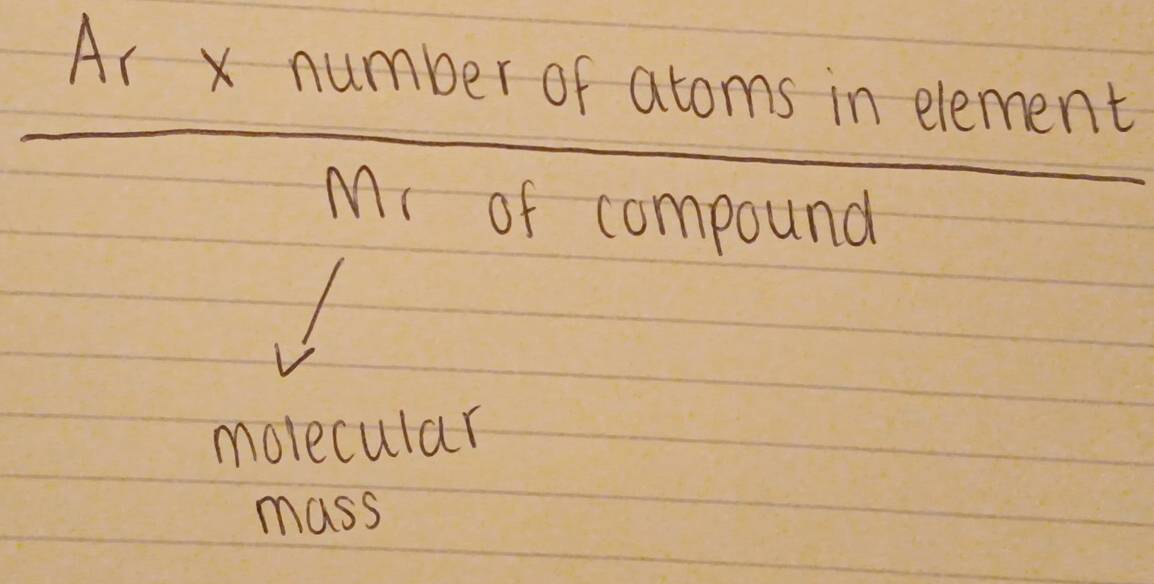 Ar x number of atoms in element
Mr of compound
molecular
mass